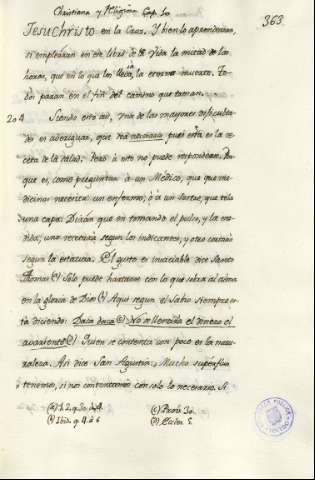 Christiana y Religiosa Cap. 10
363
Jesu Christo en la Cruz. Y bien lo aprenderian,
si emplearan en este libro de la Vida la mitad de las
horas, que en lo que los lleva la eterna muerte. To-
do paran en el fin del camino que toman.
204 Siendo esto así, una de las mayores dificulta-
des es averiguar, que sea necesario pues esta es la re-
ceta de la salud. Pero à esto no puede responderse. Por-
que es, como preguntar à un Médico, que que me-
dicina recetará à un enfermo, ó à un sastre, que tela
una capa. Dirán que en tomando el pulso, y la me-
dida; uno recetaria segun los indicantes, y otro cortará
segun la estatura. El gusto es insaciable dice Santo
Thomas (a) Solo puede hartarse con lo que sobra al alma
en la gloria de Dios (b) Aqui segun el Sabio siempre es-
ta diciendo: Daca daca (c) No se llena de dinero el
avariento (d) Quien se contenta con poco es la natu-
raleza. Asi dice San Agustin: Mucho superfluo
tenemos, si nos contentamos con solo lo necesario. Si
(a) 1. 2. q. 30. a. 4.
(b) Ibid. q. 4. à 6
(c) Prov. 30.
(d) Eccles. 5.